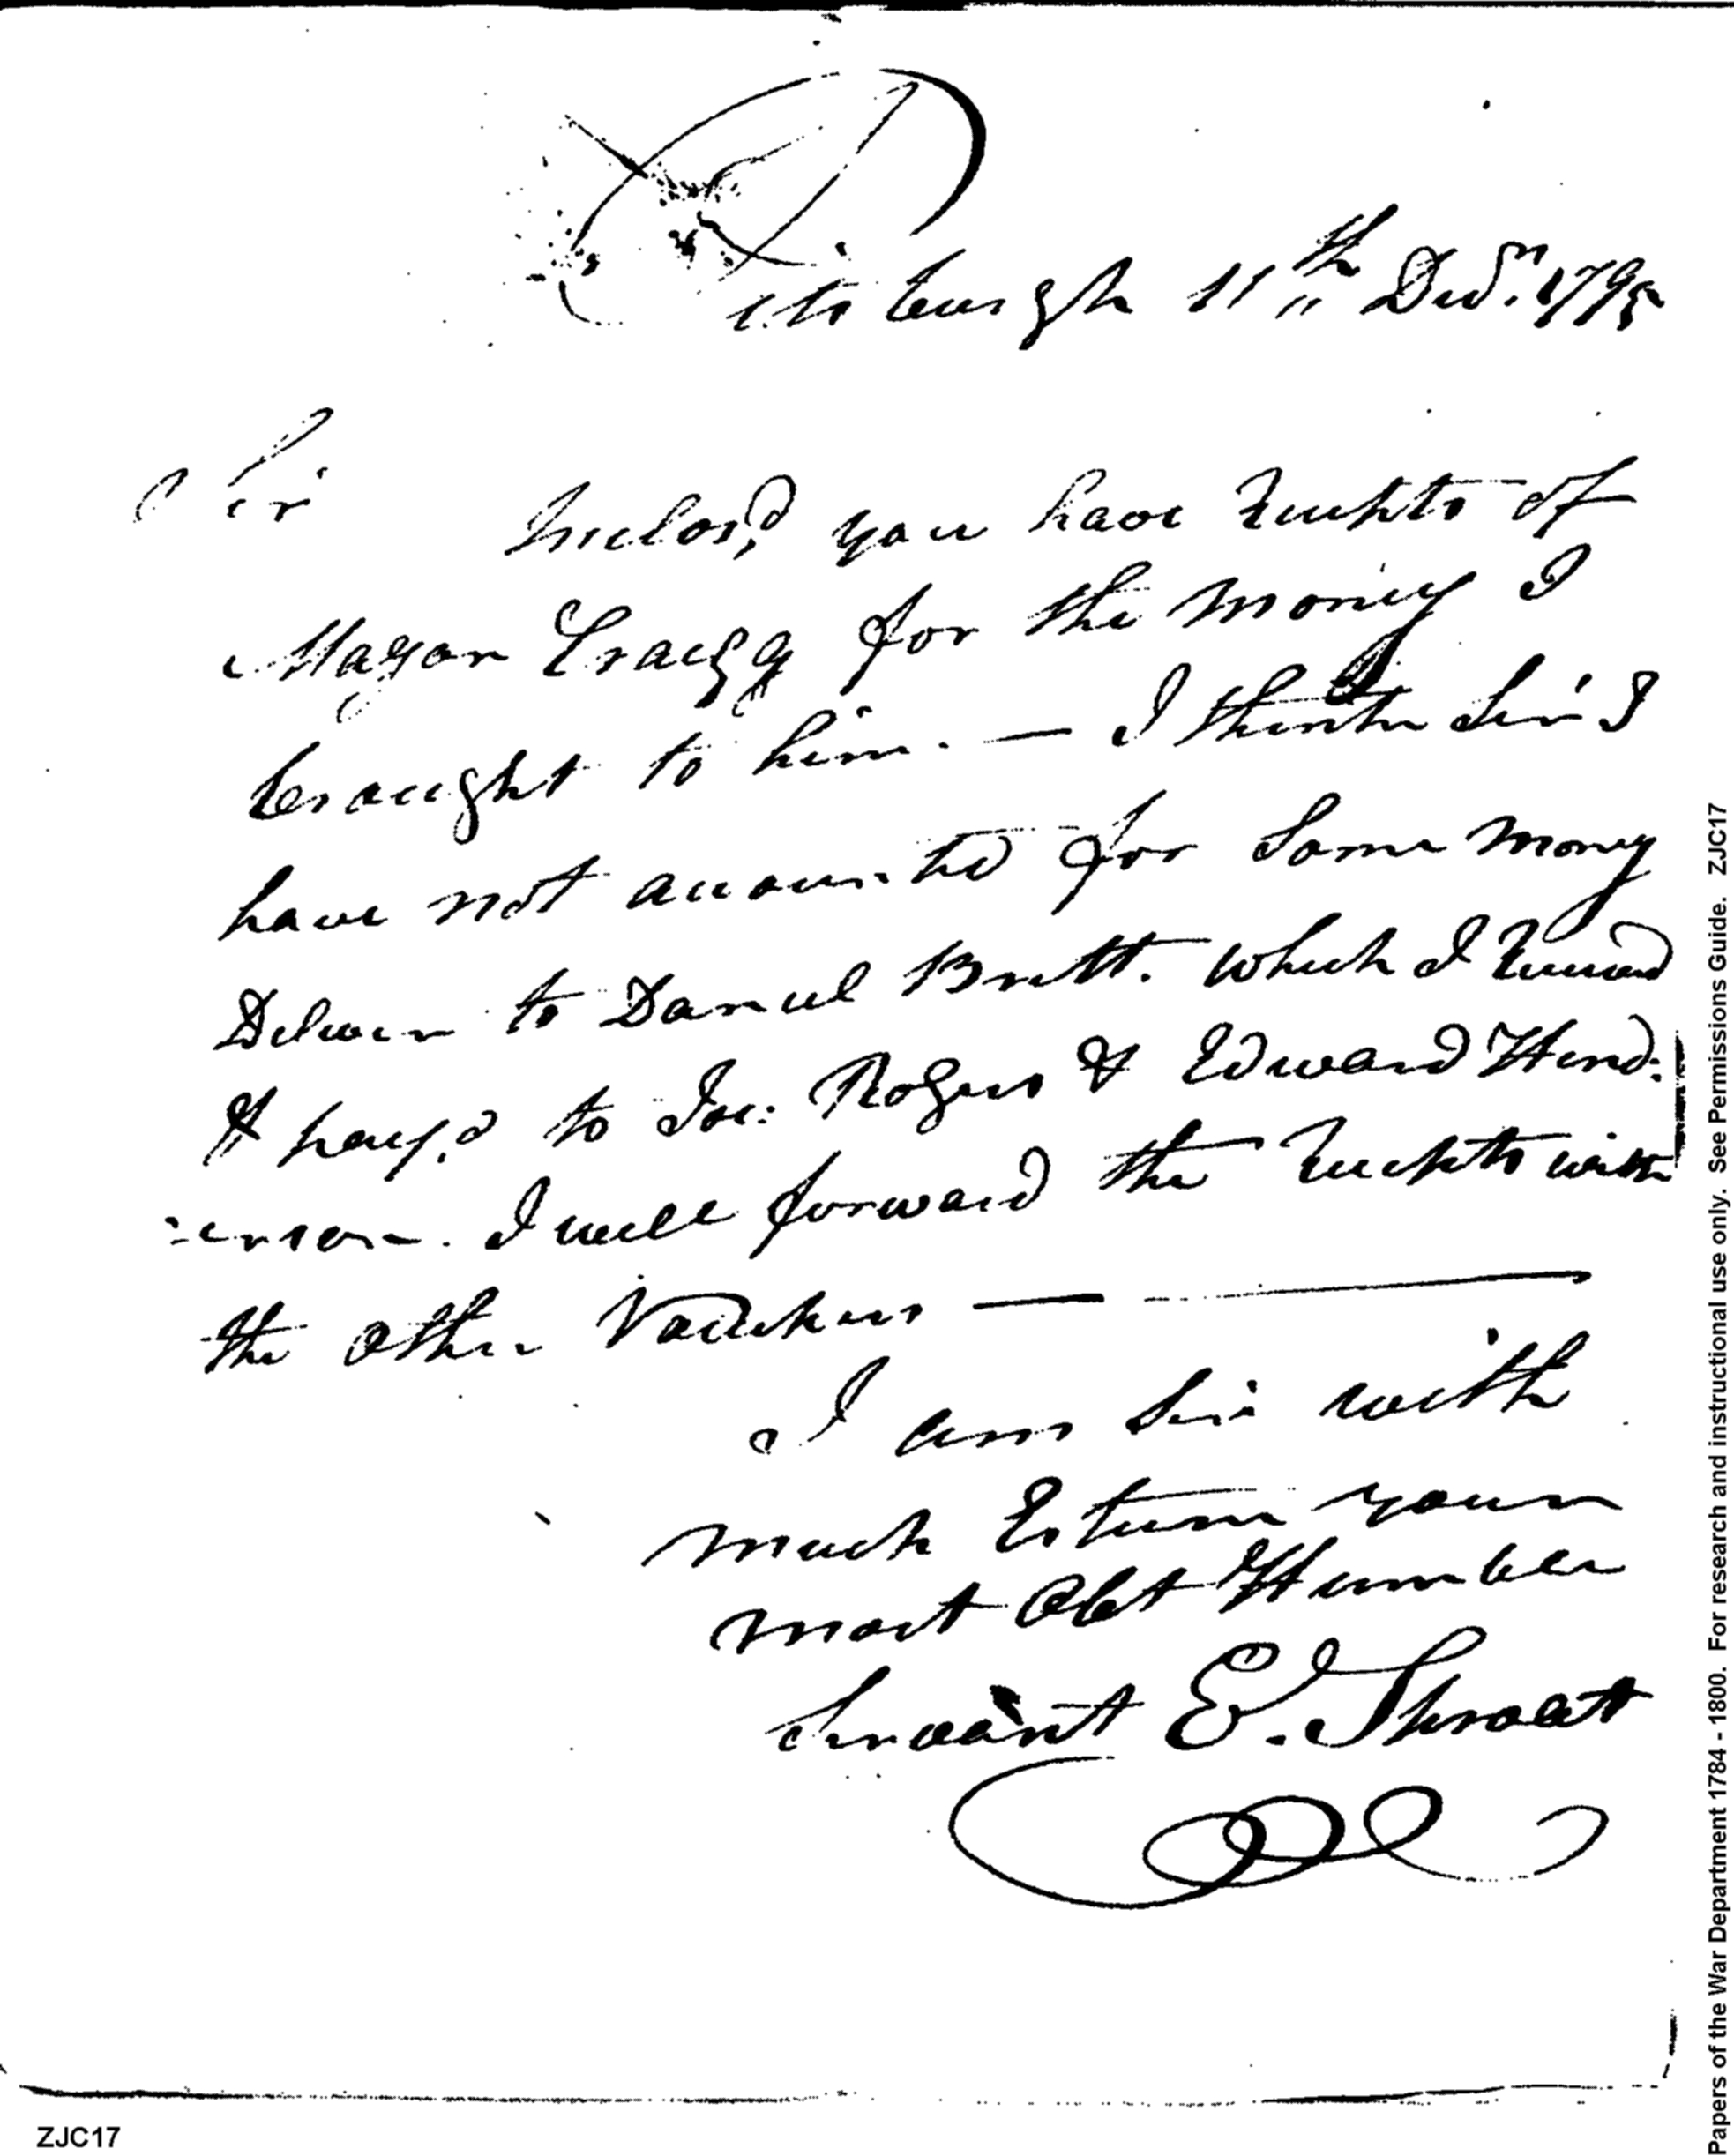 Pittsburgh 11th Decr. 1795
Sir
Inclos,d you have Receipts of
Mayor Craigg for the Money I
braught to him. — I think Sir I
have not accounted for Some Money
Deliver to Daniel Britt. Which I
& pay,d to Rogers & Edward Hend:
:erson. I will forward the Receipts with
the other Vouchers —
I am Sir with
much Esteem your
most Obt Humble
Servant E. Shroat
ZJC17
Papers of the War Department 1784 - 1800. For research and instructional use only. See Permissions Guide. ZJC17